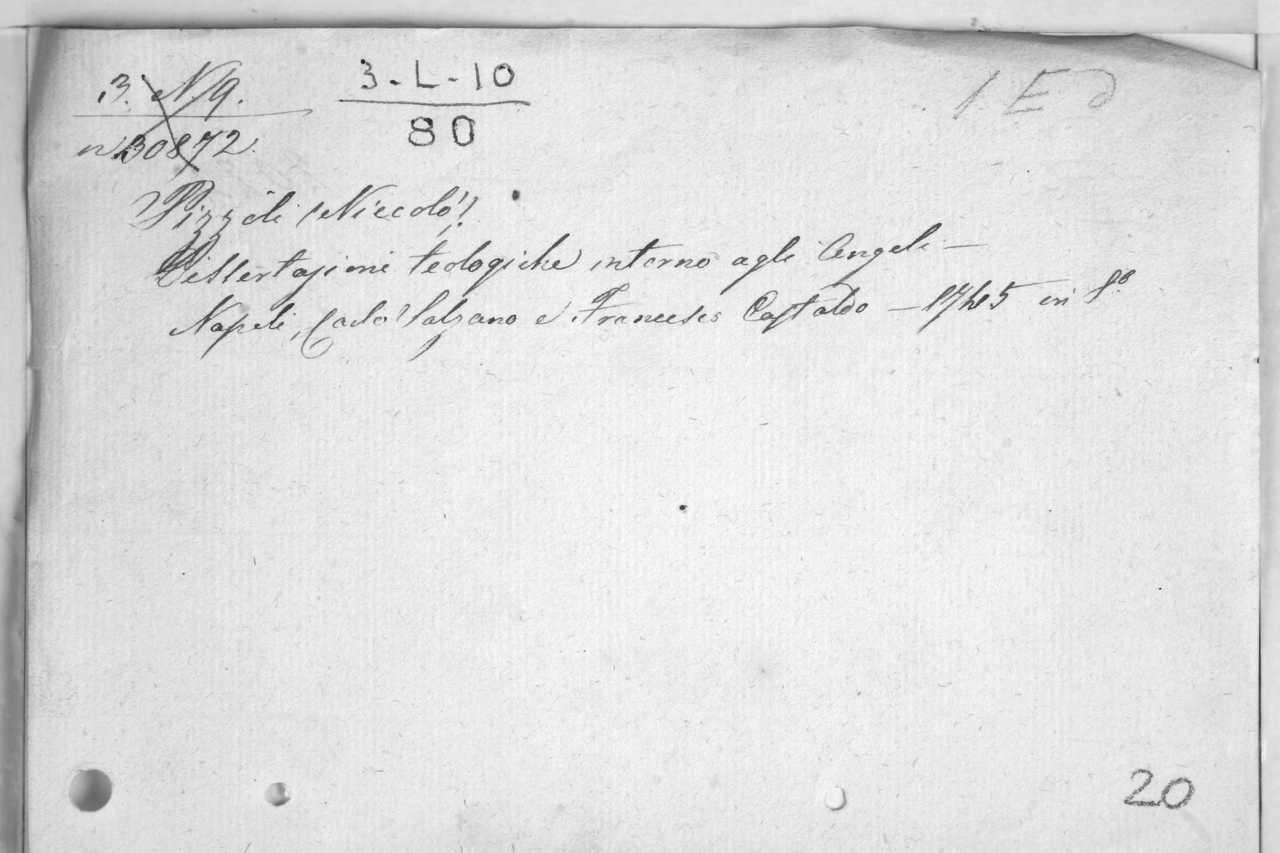 3. N 9.
3-L-10
1 ED
n 30872.
80
Pizzoli (Niccolò)
Dissertazioni teologiche intorno agli Angeli —
Napoli, Carlo Salzano e Francesco Castaldo — 1745 in 8.º
20